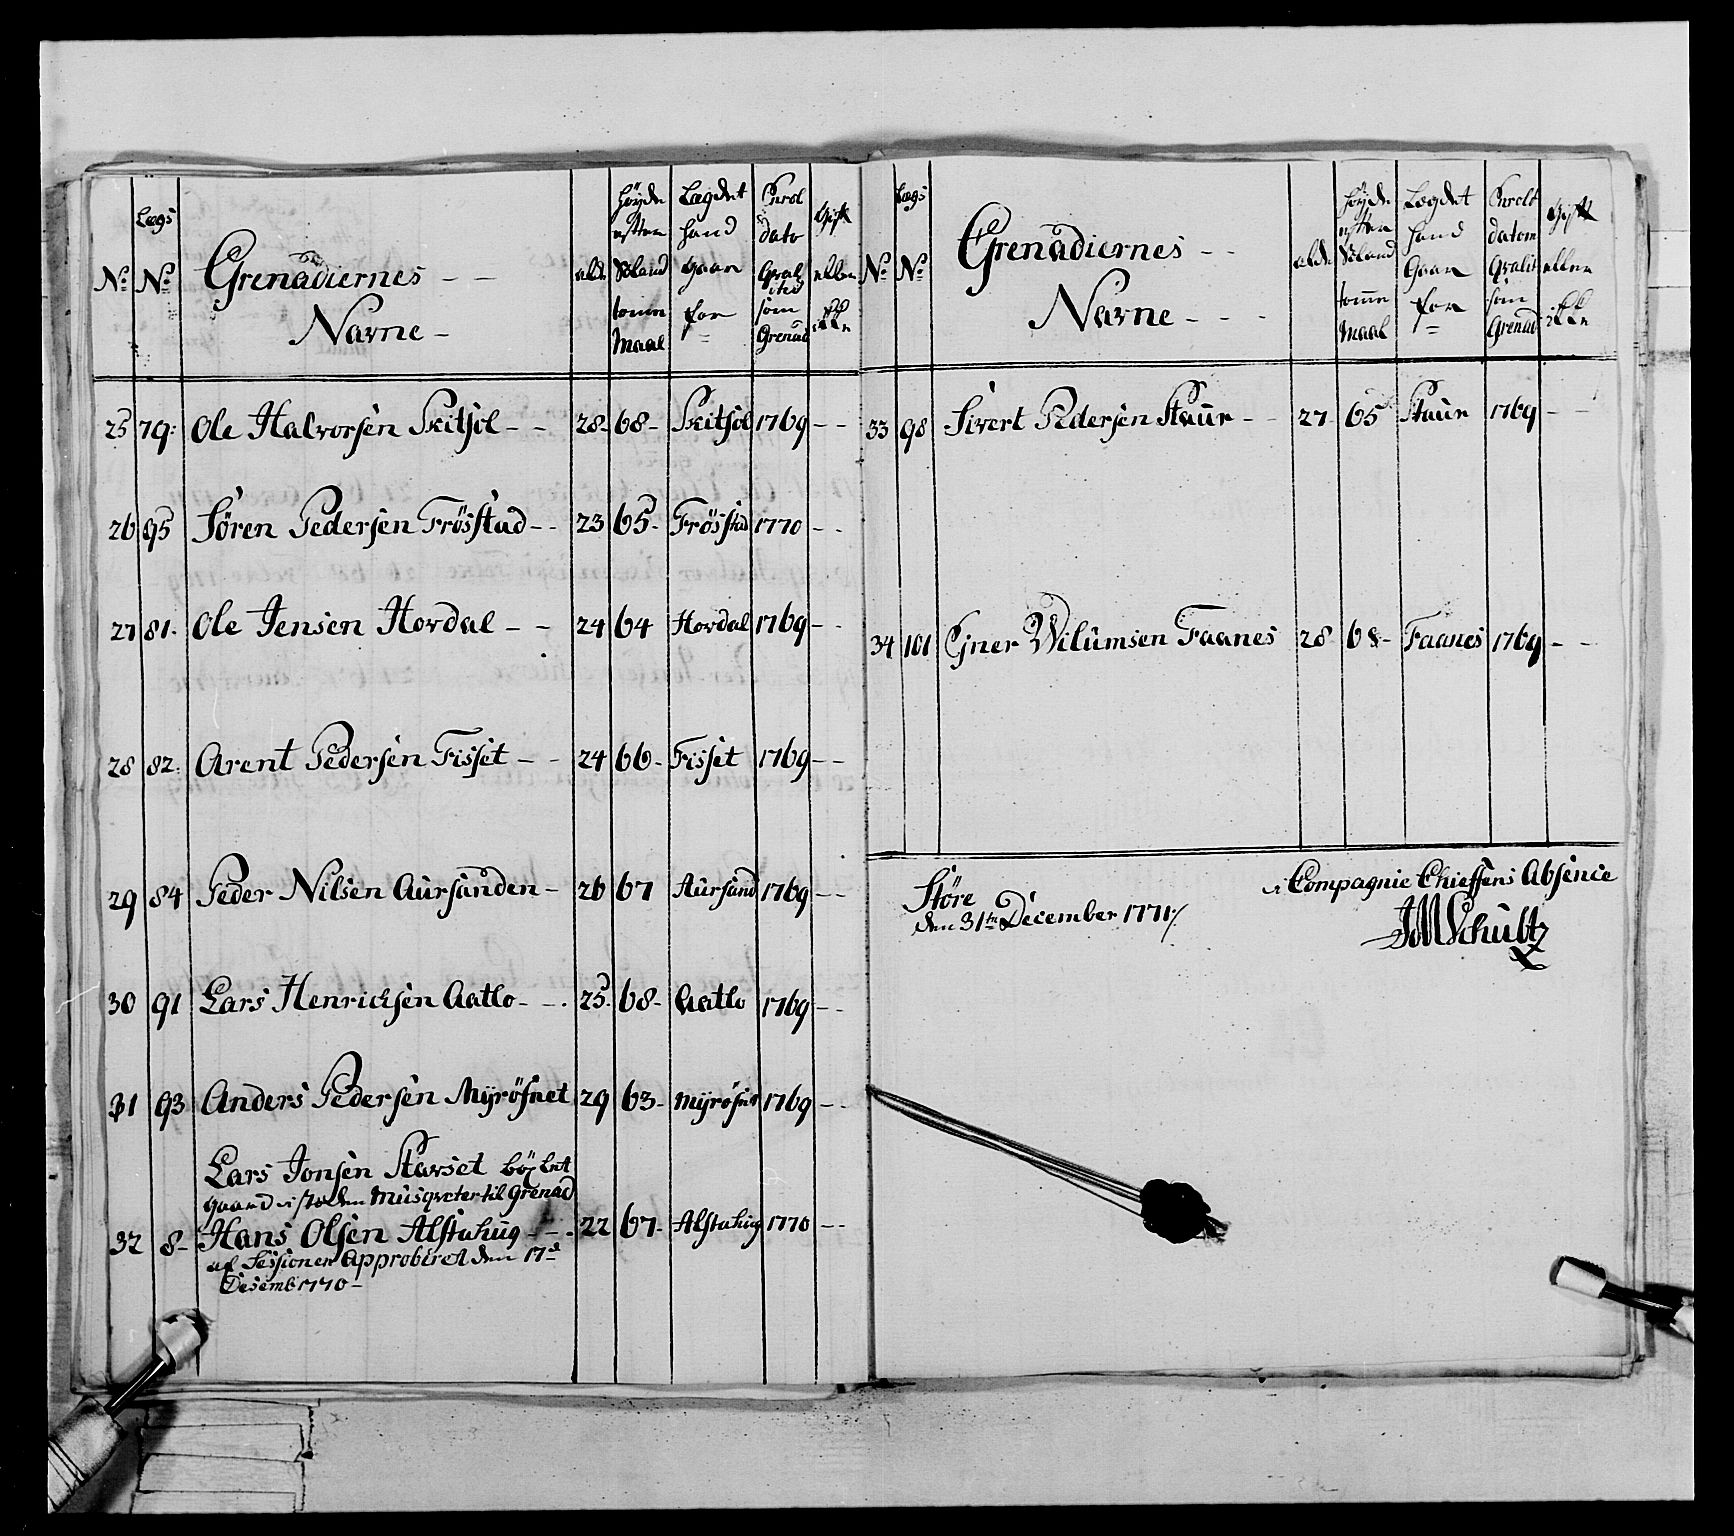 Lægs
No No Grenadiernes Navne alder Høyde efter Sæland tomme Maal Lægdet hand Gaar for Enrol dato Qvalitet som Grenad Gift eller ikke
25 79: Ole Halvorsen Skitsöl - - 28 68 - Skitsöl 1769 - -
26 95 Sören Pedersen Frösstad - - 23 65 - Frösstad 1770 - -
27 81. Ole Jensen Hovdal - - 24 64 Hovdal 1769 - -
28 82: Arent Pedersen Fisset - - 24 66 - Fisset 1769 - -
29 84 Peder Nilsen Aursanden - 26 67 Aursand 1769 - -
30 91 Lars Henricksen Aatlo - - . 25. 68 - Aatlo 1769 - -
31 93 Anders Pedersen Myrösnet 29 63 - Myrösnet 1769 - -
Lars Jonsen Starset
gaaed i steden Musqveter til Grenad
32 8 - Hans Olsen Alstahug - - . 22 67 - Alstahug 1770 - -
af Sessionen Approberet den 17de
Desemb 1770 -
Lægs
No No Grenadiernes - - Navne - - - alder Høyde efter Sæland tomme Maal Lægdet hand Gaar for datom Qvalit som Grenad Gift eller ikke
33 98 Sivert Pedersen Staur - - 27 65 Staur 1769 - -
34 101 Ener Wilumsen Faanes 28 68 - Faanes 1769 - -
Störe
den 31te December 1771
i Compagnie Chieffens Absence
JMSchultz